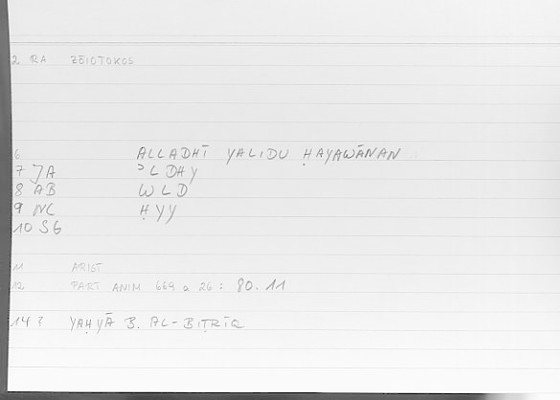 2 RA ZEIOTOKOS
6 ALLADHĪ YALIDU ḤAYAWĀNAN
7 JA ʾLDHY
8 AB WLD
9 NC ḤYY
10 SG
11 ARIST
12 PART ANIM 669 a 26: 80.11
14? YAḤYĀ B. AL-BIṬRĪQ